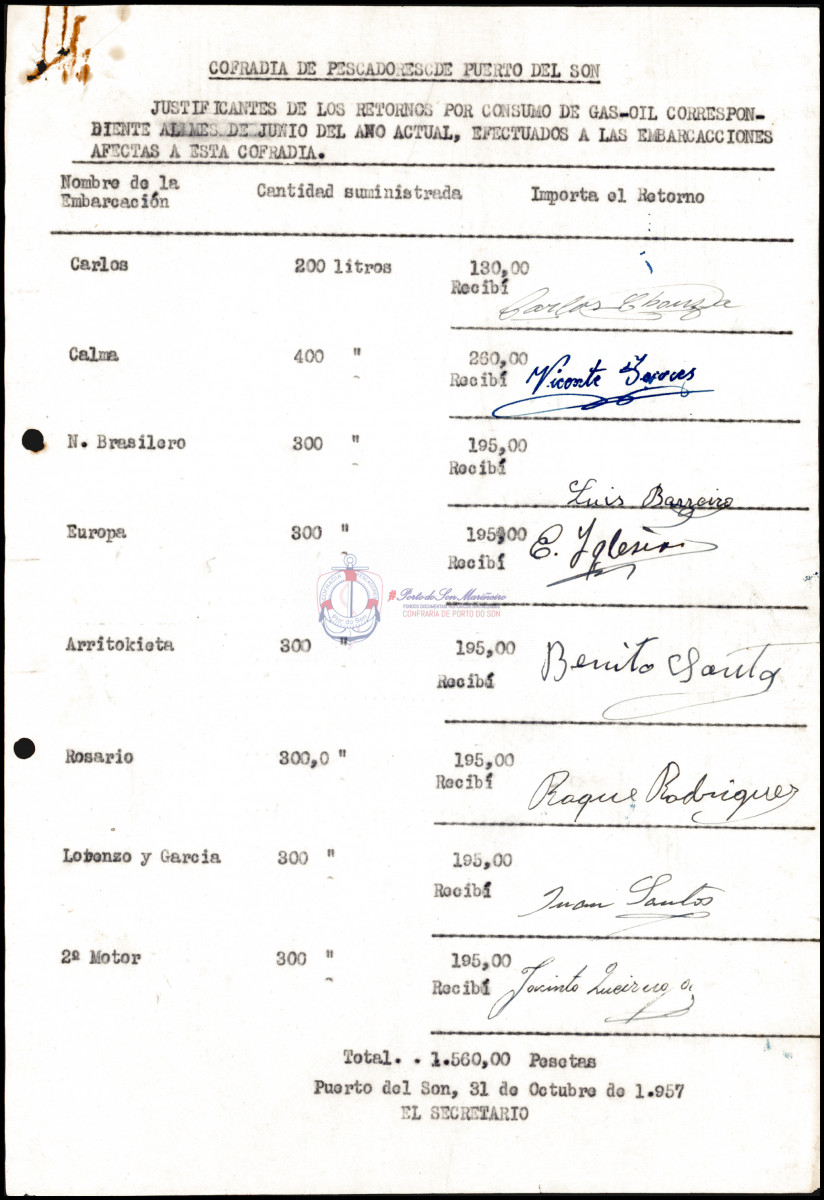 COFRADIA DE PESCADORESCDE PUERTO DEL SON
JUSTIFICANTES DE LOS RETORNOS POR CONSUMO DE GAS-OIL CORRESPON-
DIENTE AL MES DE JUNIO DEL AÑO ACTUAL, EFECTUADOS A LAS EMBARCACCIONES
AFECTAS A ESTA COFRADIA.
Nombre de la Embarcación Cantidad suministrada Importa el Retorno
Carlos 200 litros 130,00
Recibí Carlos
Calma 400 " 260,00
Recibí Vicente
N. Brasilero 300 " 195,00
Recibí
Luis Barreiro
Europa 300 " 195,00
Recibí E. Yglesias
#Porto do Son Mariñeiro
CONFRARÍA DE PORTO DO SON
Arritokieta 300 " 195,00
Recibí Benito Santos
Rosario 300,0 " 195,00
Recibí Roque Rodriguez
Lorenzo y Garcia 300 " 195,00
Recibí Juan Santos
2º Motor 300 " 195,00
Recibí Jacinto
Total. . 1.560,00 Pesetas
Puerto del Son, 31 de Octubre de 1.957
EL SECRETARIO